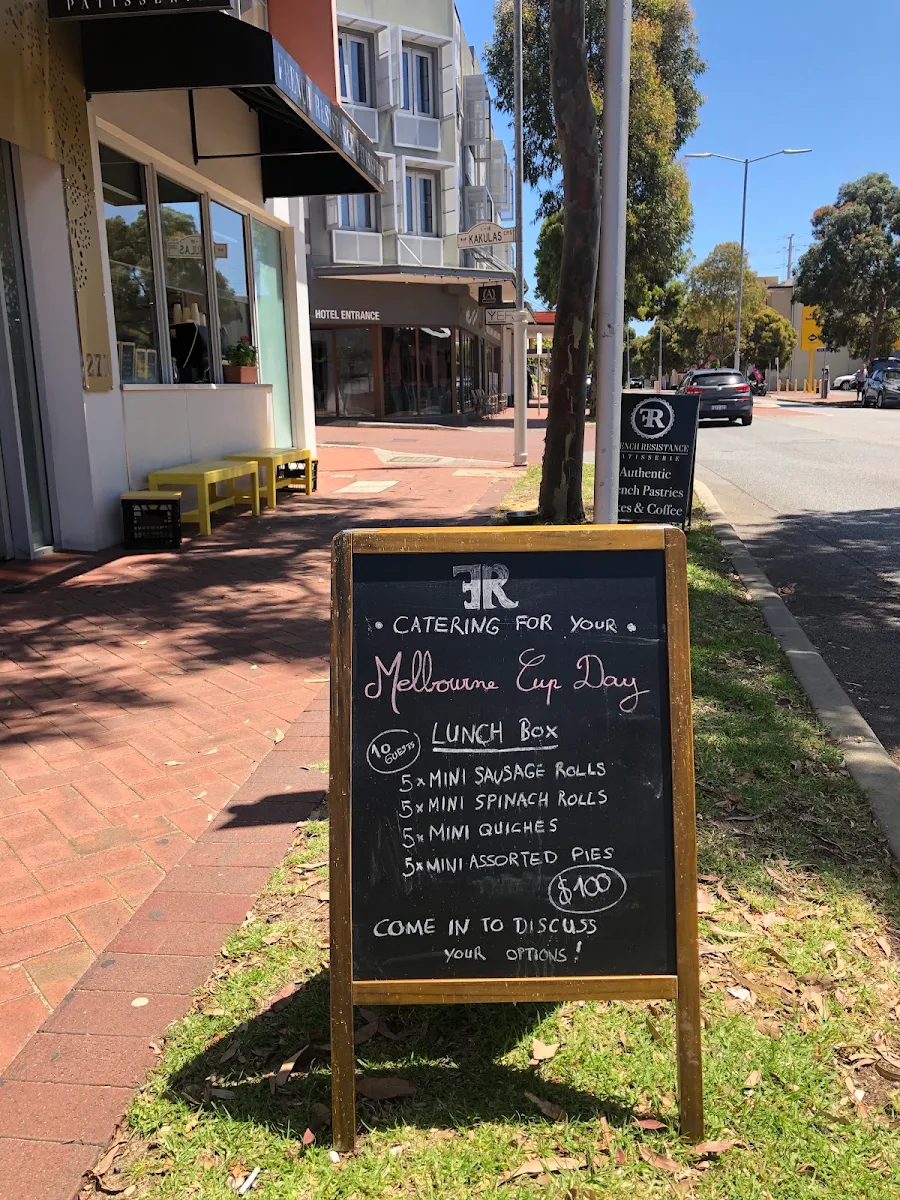 PATISSERIE
271
HOTEL ENTRANCE
KAKULAS CRS
ꟻR
RESISTANCE
PATISSERIE
Authentic
Pastries
& Coffee
ꟻR
• CATERING FOR YOUR •
Melbourne Cup Day
LUNCH BOX
10 GUESTS
5x MINI SAUSAGE ROLLS
5x MINI SPINACH ROLLS
5x MINI QUICHES
5x MINI ASSORTED PIES
$100
COME IN TO DISCUSS
YOUR OPTIONS!